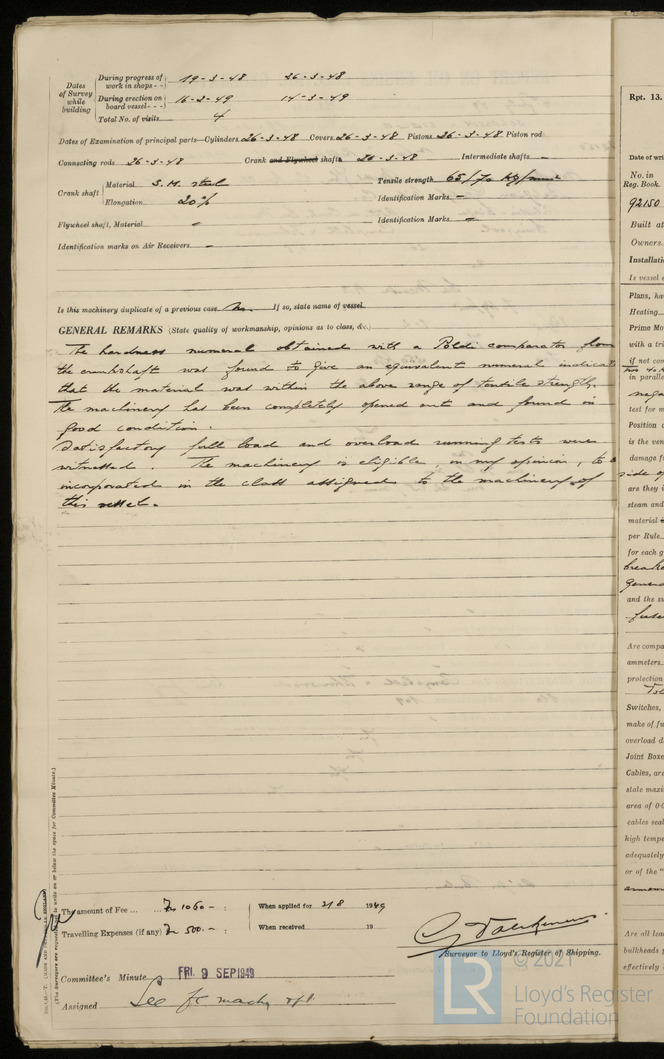 Dates of Survey while building
During progress of work in shops - - 19-3-48 26-3-48
During erection on board vessel - - - 16-2-49 14-3-49
Total No. of visits 4
Dates of Examination of principal parts—Cylinders 26-3-48 Covers 26-3-48 Pistons 26-3-48 Piston rod
Connecting rods 26-3-48 Crank and Flywheel shafts 26-3-48 Intermediate shafts —
Crank shaft Material S.M. steel Tensile strength 65/70 Kg/mm²
Elongation 20% Identification Marks —
Flywheel shaft, Material — Identification Marks —
Identification marks on Air Receivers —
Is this machinery duplicate of a previous case No. If so, state name of vessel
GENERAL REMARKS (State quality of workmanship, opinions as to class, &c.)
The hardness numeral obtained with a Poldi comparator from
the crankshaft was found to give an equivalent numeral indicat
that the material was within the above range of tensile strength.
The machinery has been completely opened out and found in
good condition.
Satisfactory full load and overload running tests were
witnessed. The machinery is eligible, in my opinion, to
incorporated in the class assigned to the machinery of
this vessel.
The amount of Fee ... ... 1060 - : When applied for 21/8 1949
Travelling Expenses (if any) 500. - : When received 19
Surveyor to Lloyd's Register of Shipping.
Committee's Minute FRI. 9 SEP 1949
Assigned See
(The Surveyors are requested to write on or below the space for Committee Minute.)
Rpt. 13.
Date of wri
No. in
Reg. Book.
92150
Built at
Owners
Installati
Is vessel e
Plans, ha
Heating
Prime Mo
with a tri
if not con
in paralle
test for m
Position o
is the ven
damage fr
side of
are they i
steam and
material
per Rule
for each g
and the su
Are compa
ammeters
protection
Switches,
make of fu
overload d
Joint Boxe
Cables, are
state maxi
area of 0·0
cables seal
high tempe
adequately
or of the "
Are all lea
bulkheads p
effectively
© 2021
LR
Lloyd's Register
Foundation